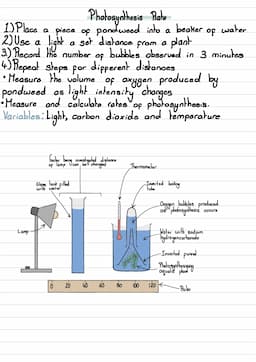 Photosynthesis Rate
1) Place a piece of pondweed into a beaker of water
2) Use a light a set distance from a plant
3) Record the number of bubbles observed in 3 minutes
4) Repeat steps for different distances
• Measure the volume of oxygen produced by
pondweed as light intensity changes
• Measure and calculate rates of photosynthesis.
Variables: Light, carbon dioxide and temperature
Factor being investigated distance
of lamp
Thermometer
Glass tank filled
with water
Inverted boiling
tube
Oxygen bubbles produced
as photosynthesis occurs
Lamp
Water with sodium
hydrogencarbonate
Inverted funnel
Photosynthesising
aquatic plant
0 20 40 60 80 100 120
Ruler